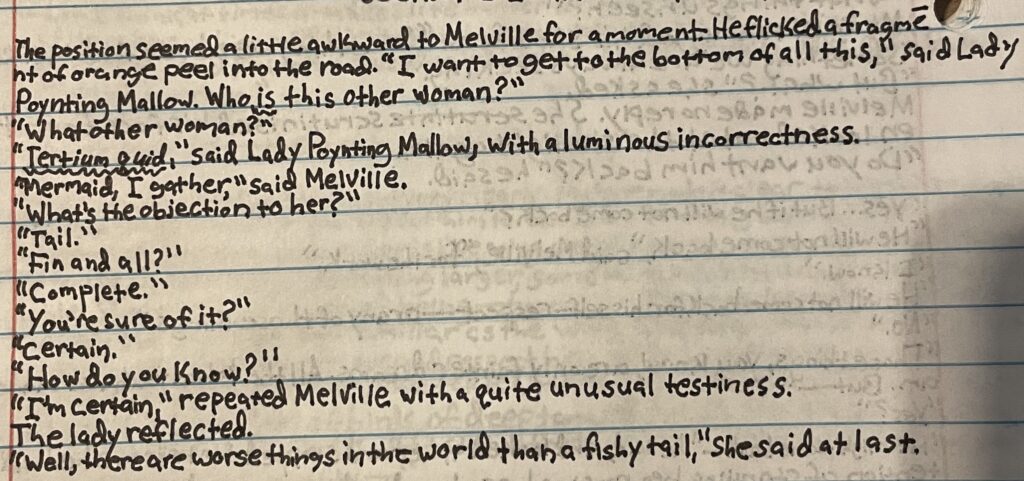 The position seemed a little awkward to Melville for a moment. He flicked a fragme
nt of orange peel into the road. "I want to get to the bottom of all this," said Lady
Poynting Mallow. Who is this other woman?"
"What other woman?"
"Tertium quid," said Lady Poynting Mallow, with a luminous incorrectness.
"Mermaid, I gather," said Melville.
"What's the objection to her?"
"Tail."
"Fin and all?"
"Complete."
"You're sure of it?"
"Certain."
"How do you know?"
"I'm certain," repeated Melville with a quite unusual testiness.
The lady reflected.
"Well, there are worse things in the world than a fishy tail," she said at last.